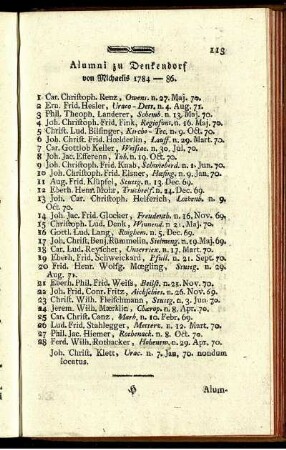 113
Alumni zu Denkendorf
von Michaelis 1784 — 86.
1 Car. Christoph. Renz, Owens. n. 27. Maj. 70.
2 Ern. Frid. Hesler, Uraco-Dett. n. 4. Aug. 71.
3 Phil. Theoph. Landerer, n. 13. Maj. 70.
4 Joh. Christoph. Frid. Fink, n. 16. Maj. 70.
5 Christ. Lud. Bilfinger, Kircho-Tec. n. 9. Oct. 70.
6 Joh. Christ. Frid. Hœlderlin, Lauff. n. 29. Mart. 70.
7 Car. Gottlob Keller, Weissac. n. 30. Jul. 70.
8 Joh. Jac. Efferenn, Tub. n. 19. Oct. 70.
9 Joh. Christoph. Frid. Knab, n. 1. Jun. 70.
10 Joh. Christoph. Frid. Elsner, n. 1. Maj. 70.
11 Aug. Frid. Klüpfel, Stutg. n. 13. Dec. 69.
12 Eberh. Henr. Mohr, n. 14. Dec. 69.
13 Joh. Car. Christoph. Helferich, n. 9. Oct. 70.
14 Joh. Jac. Frid. Glocker, Freudenth. n. 16. Nov. 69.
15 Christoph. Lud. Denk, n. 31. Maj. 70.
16 Gottl. Lud. Lang, n. 8. Oct. 70.
17 Joh. Christ. Benj. Rümmelin, n. 19. Maj. 69.
18 Car. Lud. Reyscher, Unterriex. n. 17. Mart. 70.
19 Eberh. Frid. Schweickard, Pfull. n. 21. Sept. 70.
20 Frid. Henr. Wolfg. Mœgling, Stutg. n. 29. Aug. 71.
21 Eberh. Phil. Frid. Weiss, n. 25. Nov. 70.
22 Joh. Frid. Conr. Fritz, n. 26. Nov. 69.
23 Christ. Wilh. Fleischmann, Stutg. n. 3. Jun. 70.
24 Jerem. Wilh. Mærklin, n. 8. Apr. 70.
25 Car. Christ. Canz, n. 10. Febr. 69.
26 Lud. Frid. Stahlegger, n. 12. Mart. 70.
27 Phil. Jac. Hiemer, n. 8. Oct. 70.
28 Ferd. Wilh. Rothacker, n. 29. Apr. 70.
Joh. Christ. Klett, Urac. n. 7. Jan. 70. nondum
locatus.
Alum-